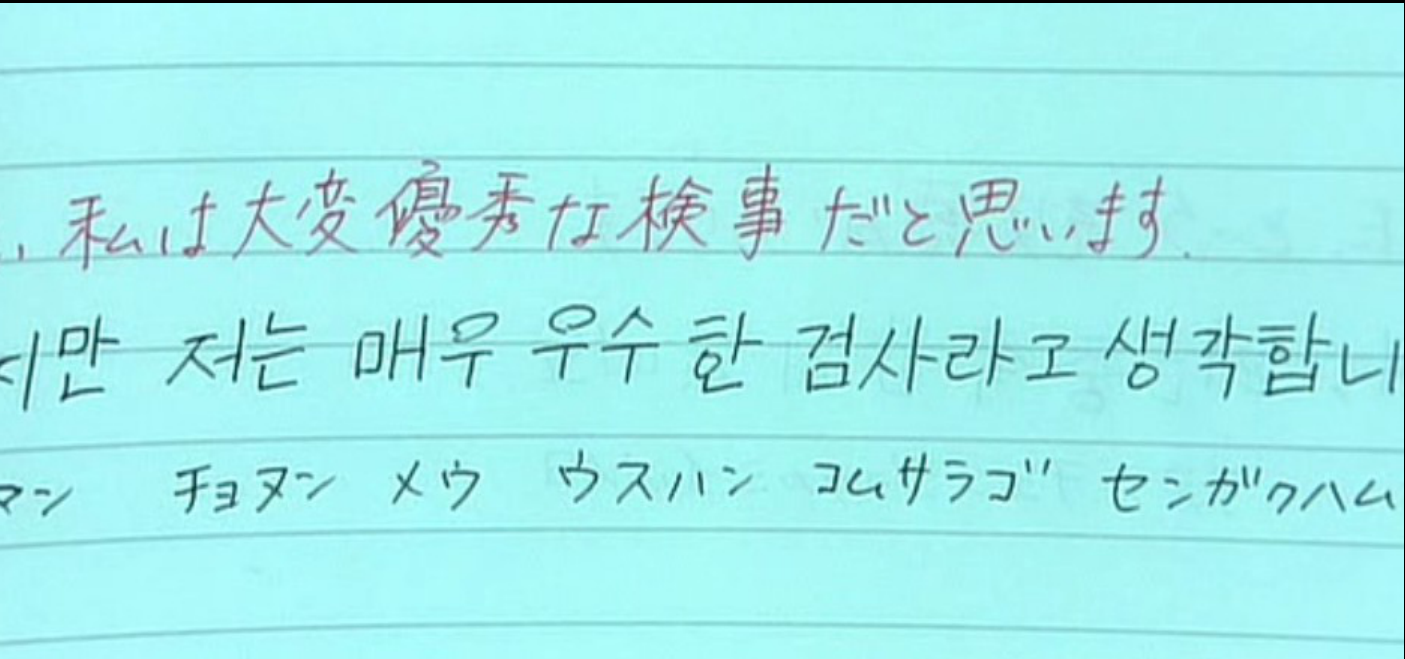 、私は大変優秀な検事だと思います.
지만 저는 매우 우수한 검사라고 생각합니
マン チョヌン メウ ウスハン コムサラゴ センガクハム